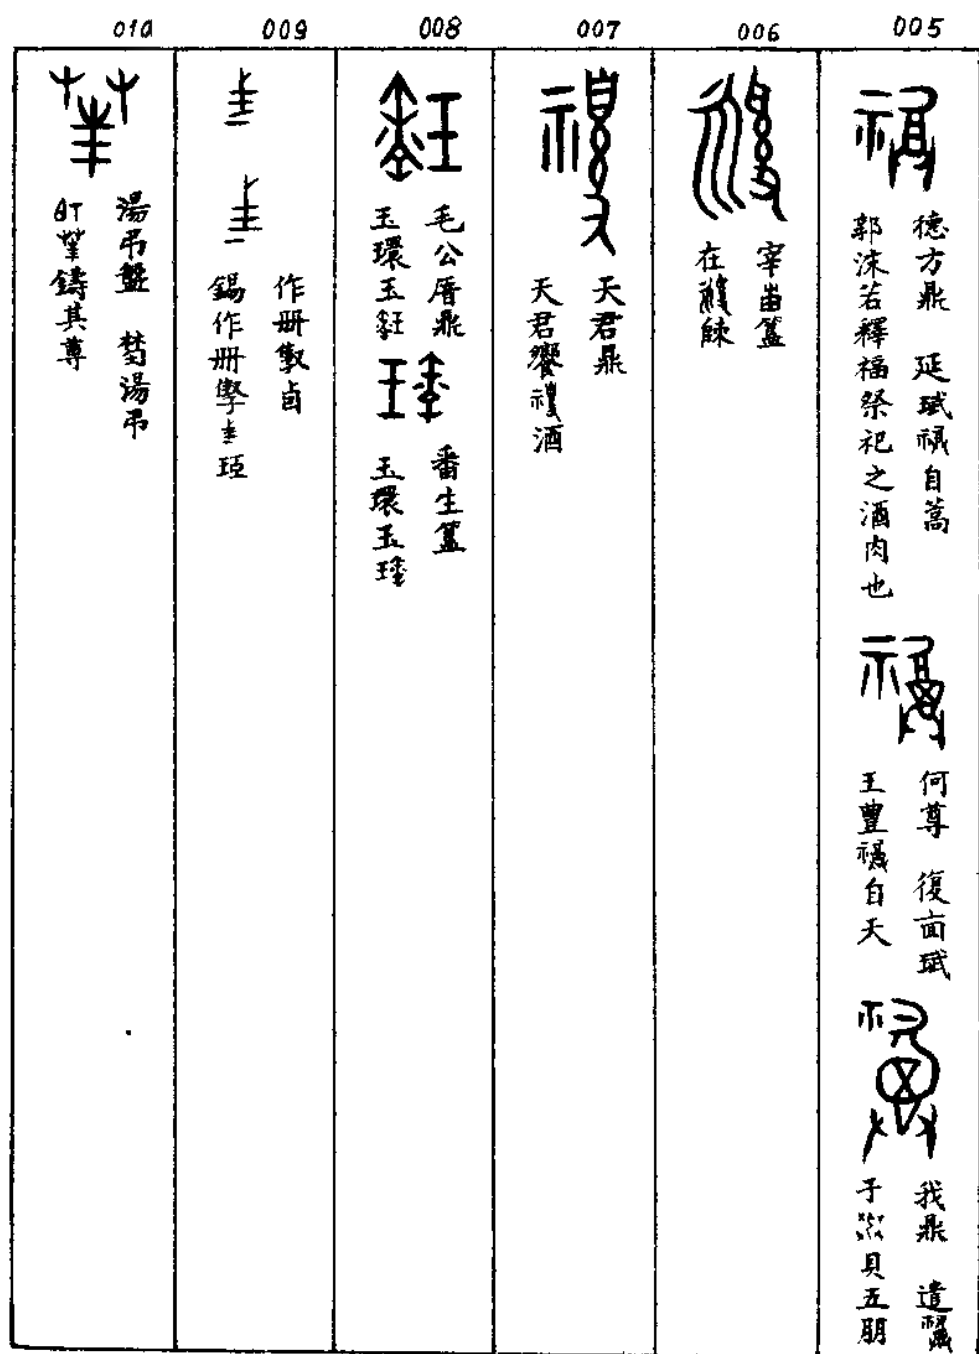 005
德方鼎 延珷自蒿
郭沫若釋福祭祀之酒肉也
何尊 復面珷
王豐自天
我鼎 遣
子貝五朋
006
宰甾簋
在餗
007
天君鼎
天君饗酒
008
毛公厝鼎
玉環玉
番生簋
玉環玉
009
作冊卣
錫作冊
010
湯弔盤 湯弔
鑄其尊